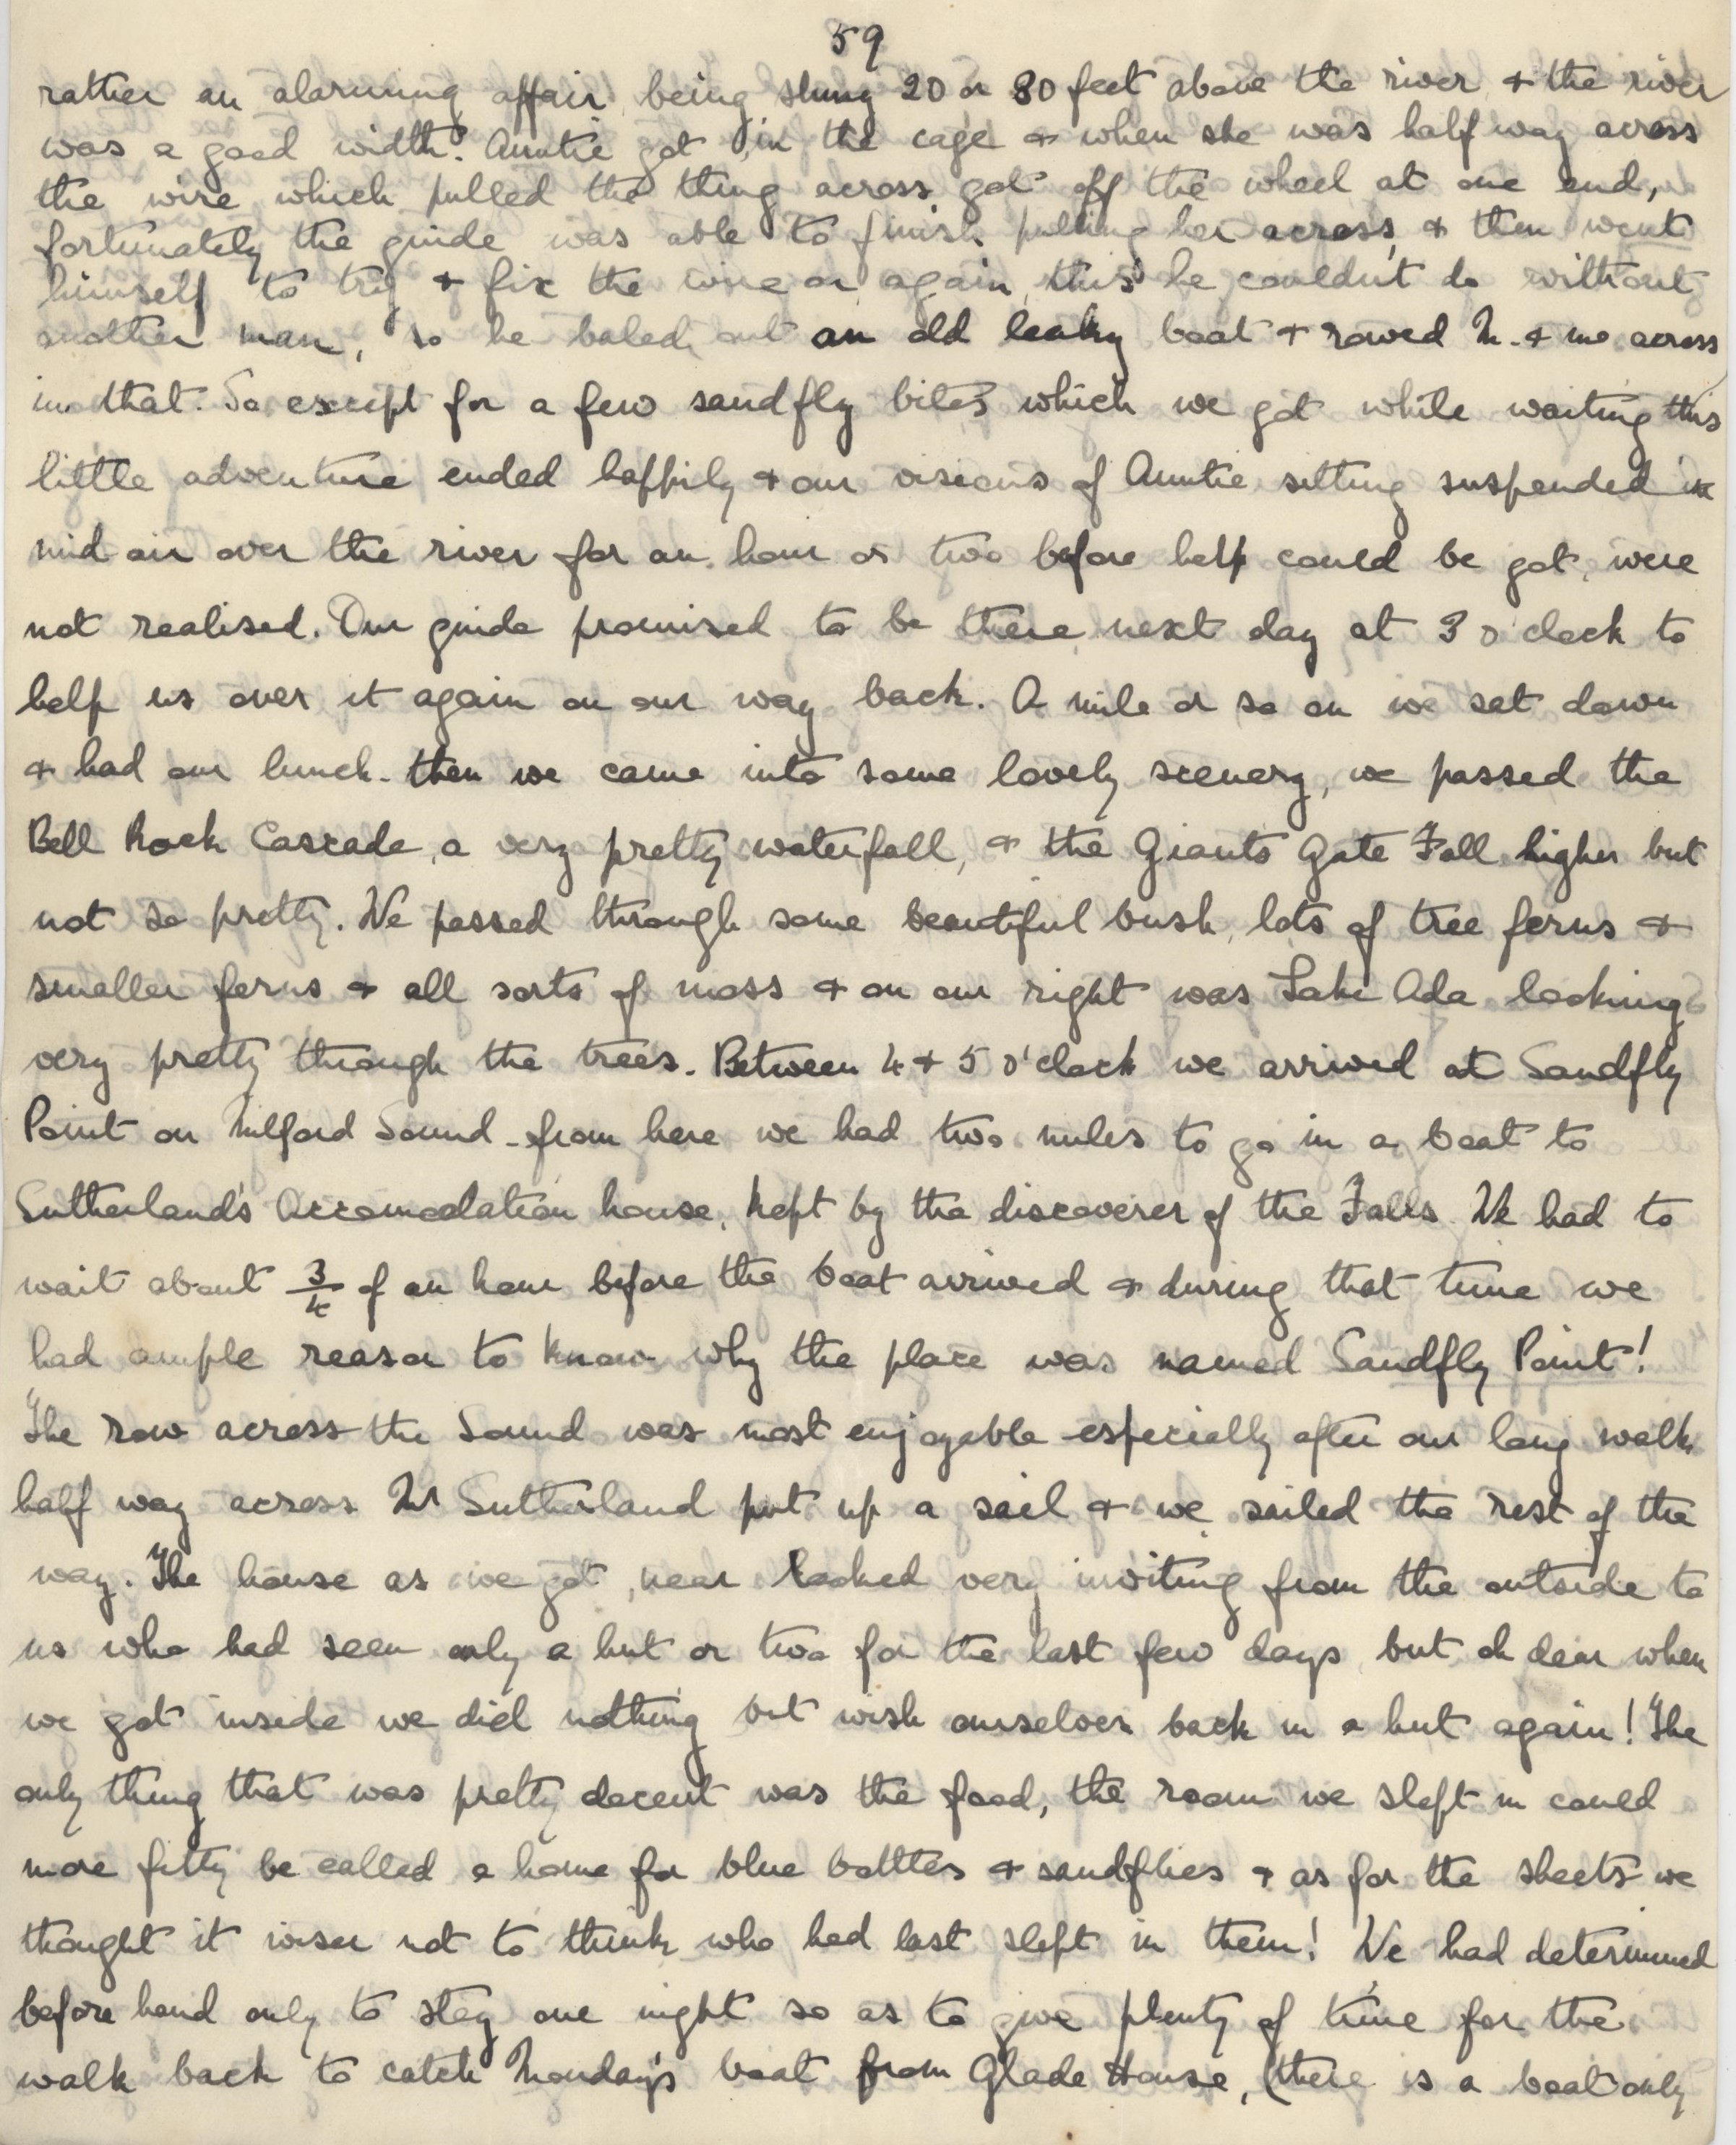 59
rather an alarming affair being slung 20 or 30 feet above the river & the river
was a good width. Auntie got in the cage & when she was half way across
the wire which pulled the thing across got off the wheel at one end,
fortunately the guide was able to finish pulling her across, & then went
himself to try & fix the wire on again, this he couldn't do without
another man, so he baled out an old leaky boat & rowed M. & me across
in that. So except for a few sandfly bites which we got while waiting this
little adventure ended happily & our visions of Auntie sitting suspended in
mid air over the river for an hour or two before help could be got, were
not realised. Our guide promised to be there next day at 3 o'clock to
help us over it again on our way back. A mile or so on we sat down
& had our lunch - then we came into some lovely scenery, we passed the
Bell Rock Cascade, a very pretty waterfall, & the Giants Gate Fall higher but
not so pretty. We passed through some beautiful bush, lots of tree ferns &
smaller ferns & all sorts of moss & on our right was Lake Ada looking
very pretty through the trees. Between 4 & 5 o'clock we arrived at Sandfly
Point on Milford Sound - from here we had two miles to go in a boat to
Sutherland's Accomodation house, kept by the discoverer of the Falls. We had to
wait about 3/4 of an hour before the boat arrived & during that time we
had ample reason to know why the place was named Sandfly Point!
The row across the Sound was most enjoyable especially after our long walk,
half way across Mr Sutherland put up a sail & we sailed the rest of the
way. The house as we got near looked very inviting from the outside to
us who had seen only a hut or two for the last few days, but oh dear when
we got inside we did nothing but wish ourselves back in a hut again! The
only thing that was pretty decent was the food, the room we slept in could
more fitly be called a home for blue bottles & sandflies & as for the sheets we
thought it wiser not to think who had last slept in them! We had determined
before hand only to stay one night so as to give plenty of time for the
walk back to catch Monday's boat from Glade House, (there is a boat only